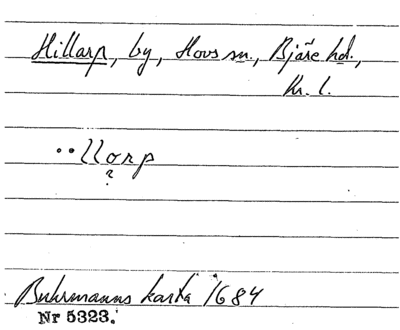 Hillarp, by, Hovs sn., Bjäre hd.,
Kr. l.
··llorp
?
Buhrmanns karta 1684
Nr 5323.